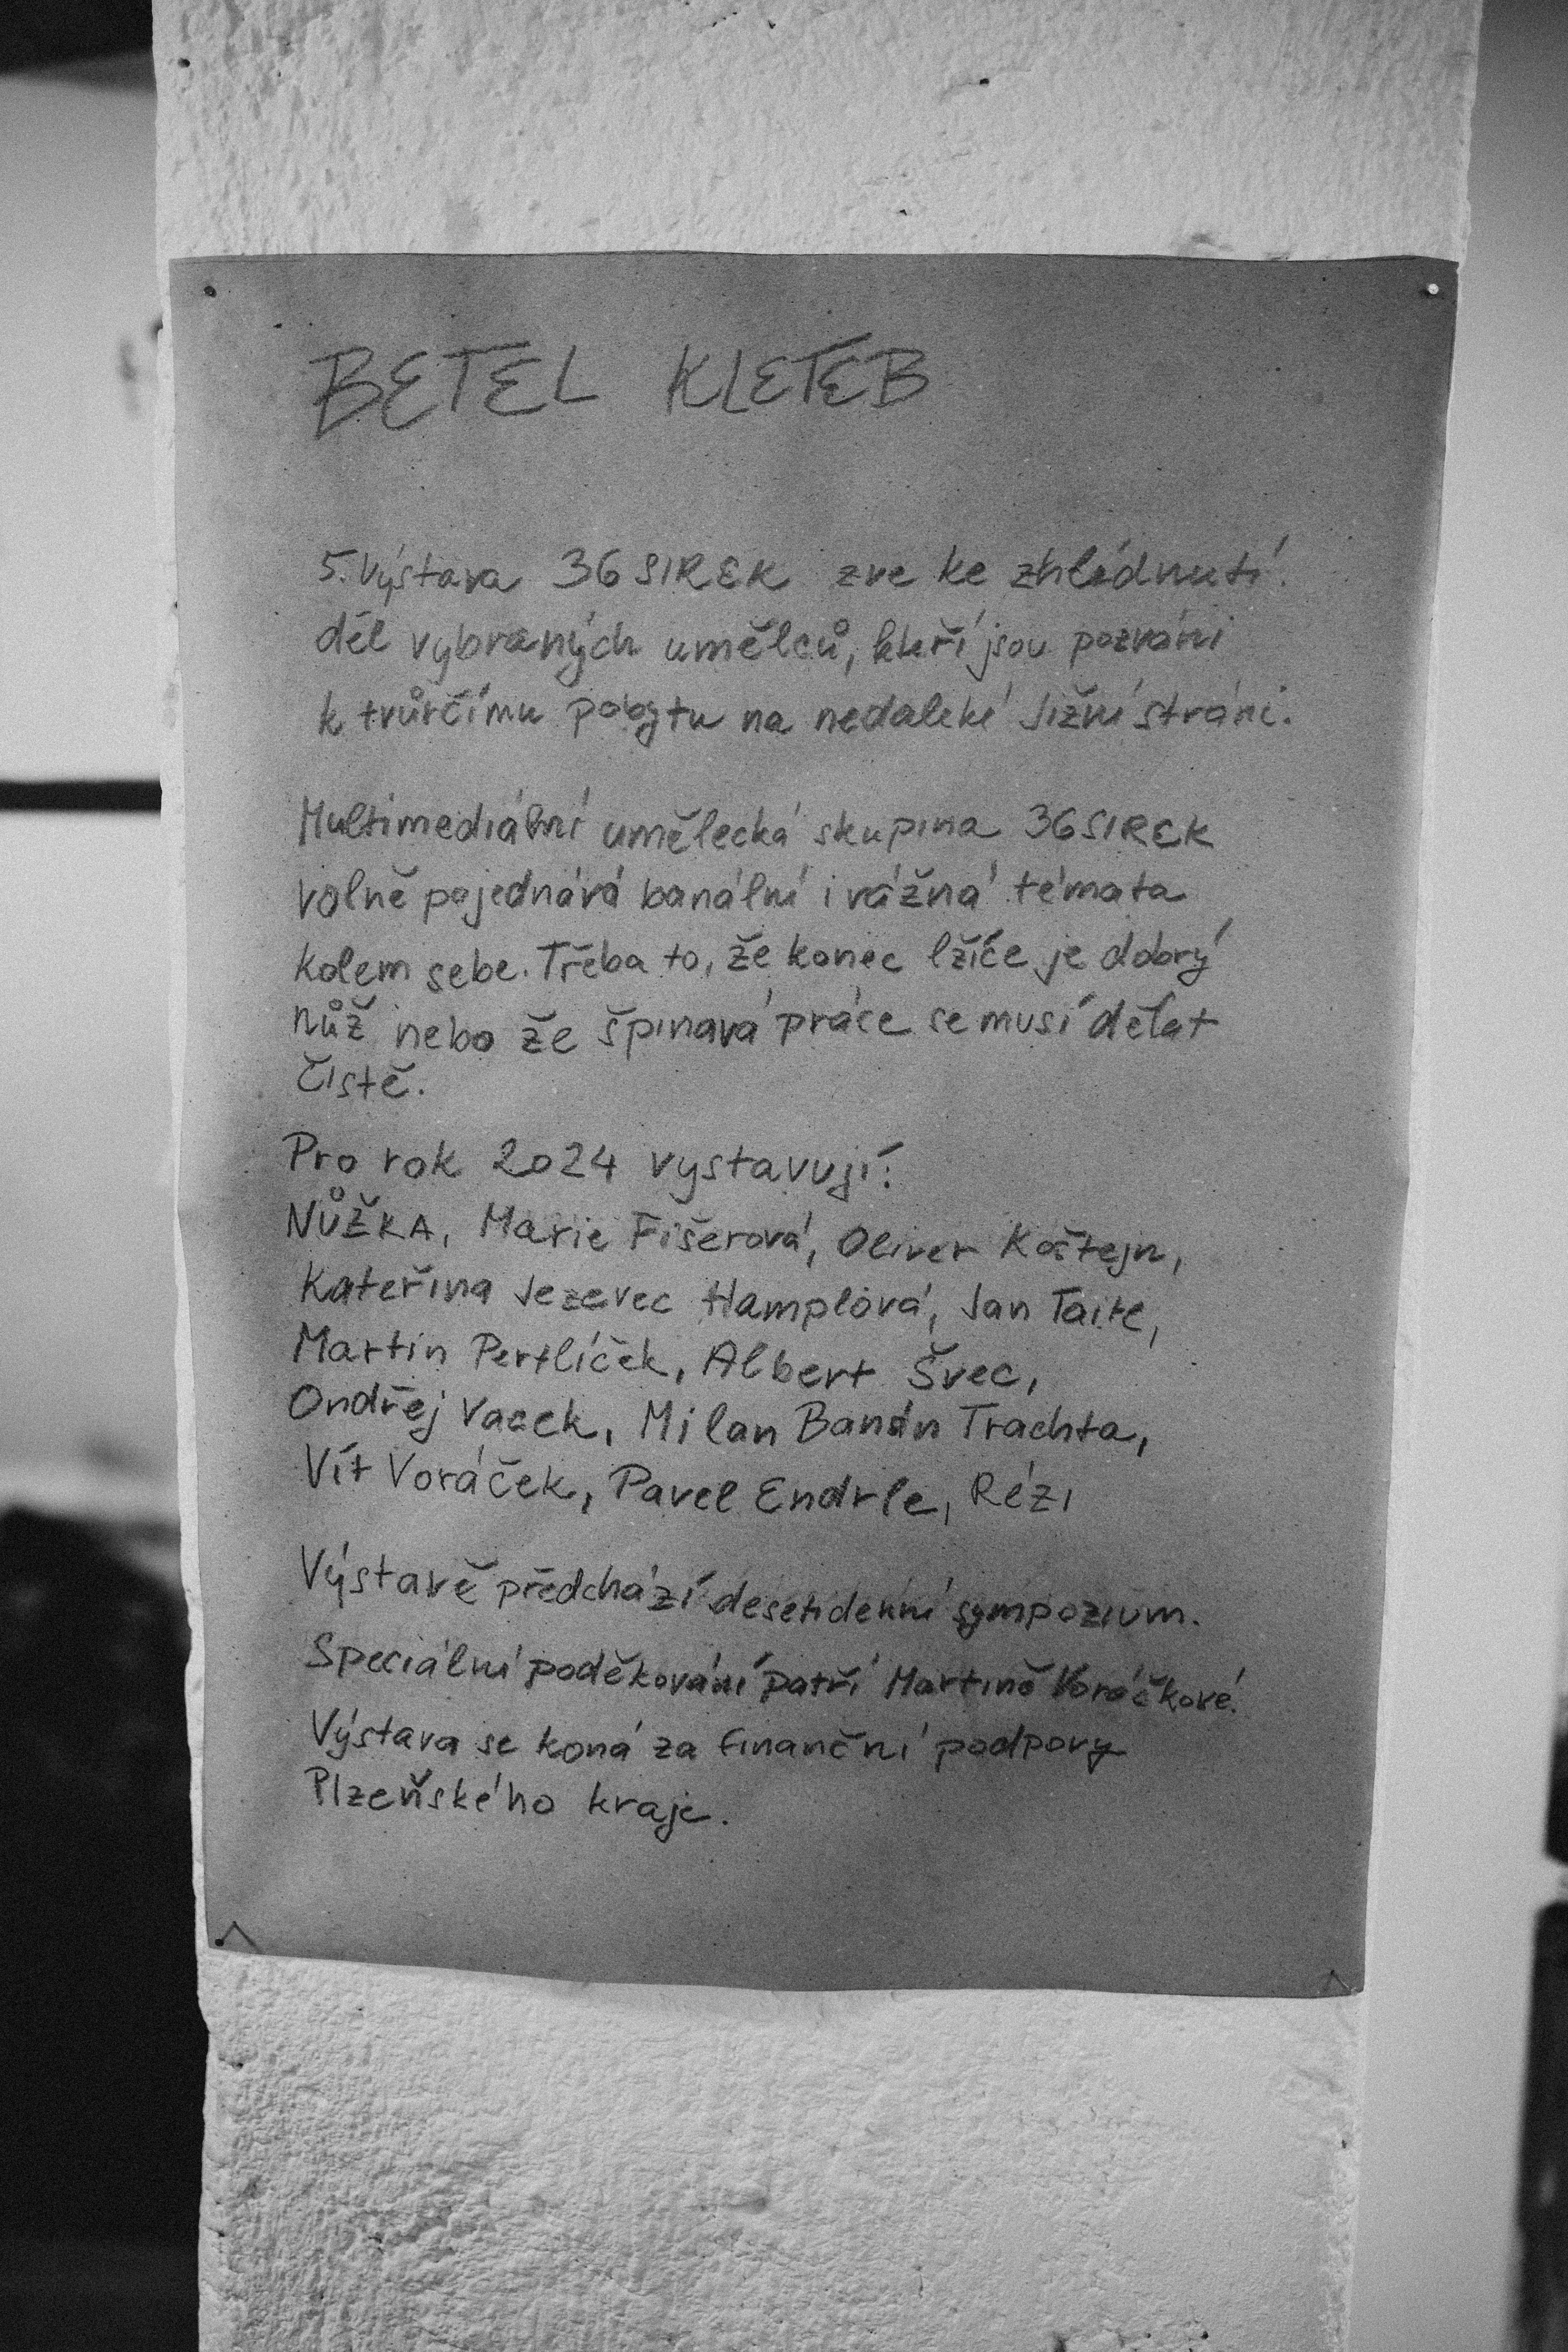 BETEL KLETEB
5. Výstava 36SIREK zve ke zhlédnutí
děl vybraných umělců, kteří jsou pozváni
k tvůrčímu pobytu na nedaleké Jižní stráni.
Multimediální umělecká skupina 36SIREK
volně pojednává banální i vážná témata
kolem sebe. Třeba to, že konec lžíce je dobrý
nůž nebo že špinavá práce se musí dělat
čistě.
Pro rok 2024 vystavují:
NŮŽKA, Marie Fišerová, Oliver Koštejn,
Kateřina Jezevec Hamplová, Jan Taitl,
Martin Pertlíček, Albert Švec,
Ondřej Vacek, Milan Banán Trachta,
Vít Voráček, Pavel Endrle, Rézi
Výstavě předchází desetidenní sympozium.
Speciální poděkování patří Martině Voráčkové.
Výstava se koná za finanční podpory
Plzeňského kraje.